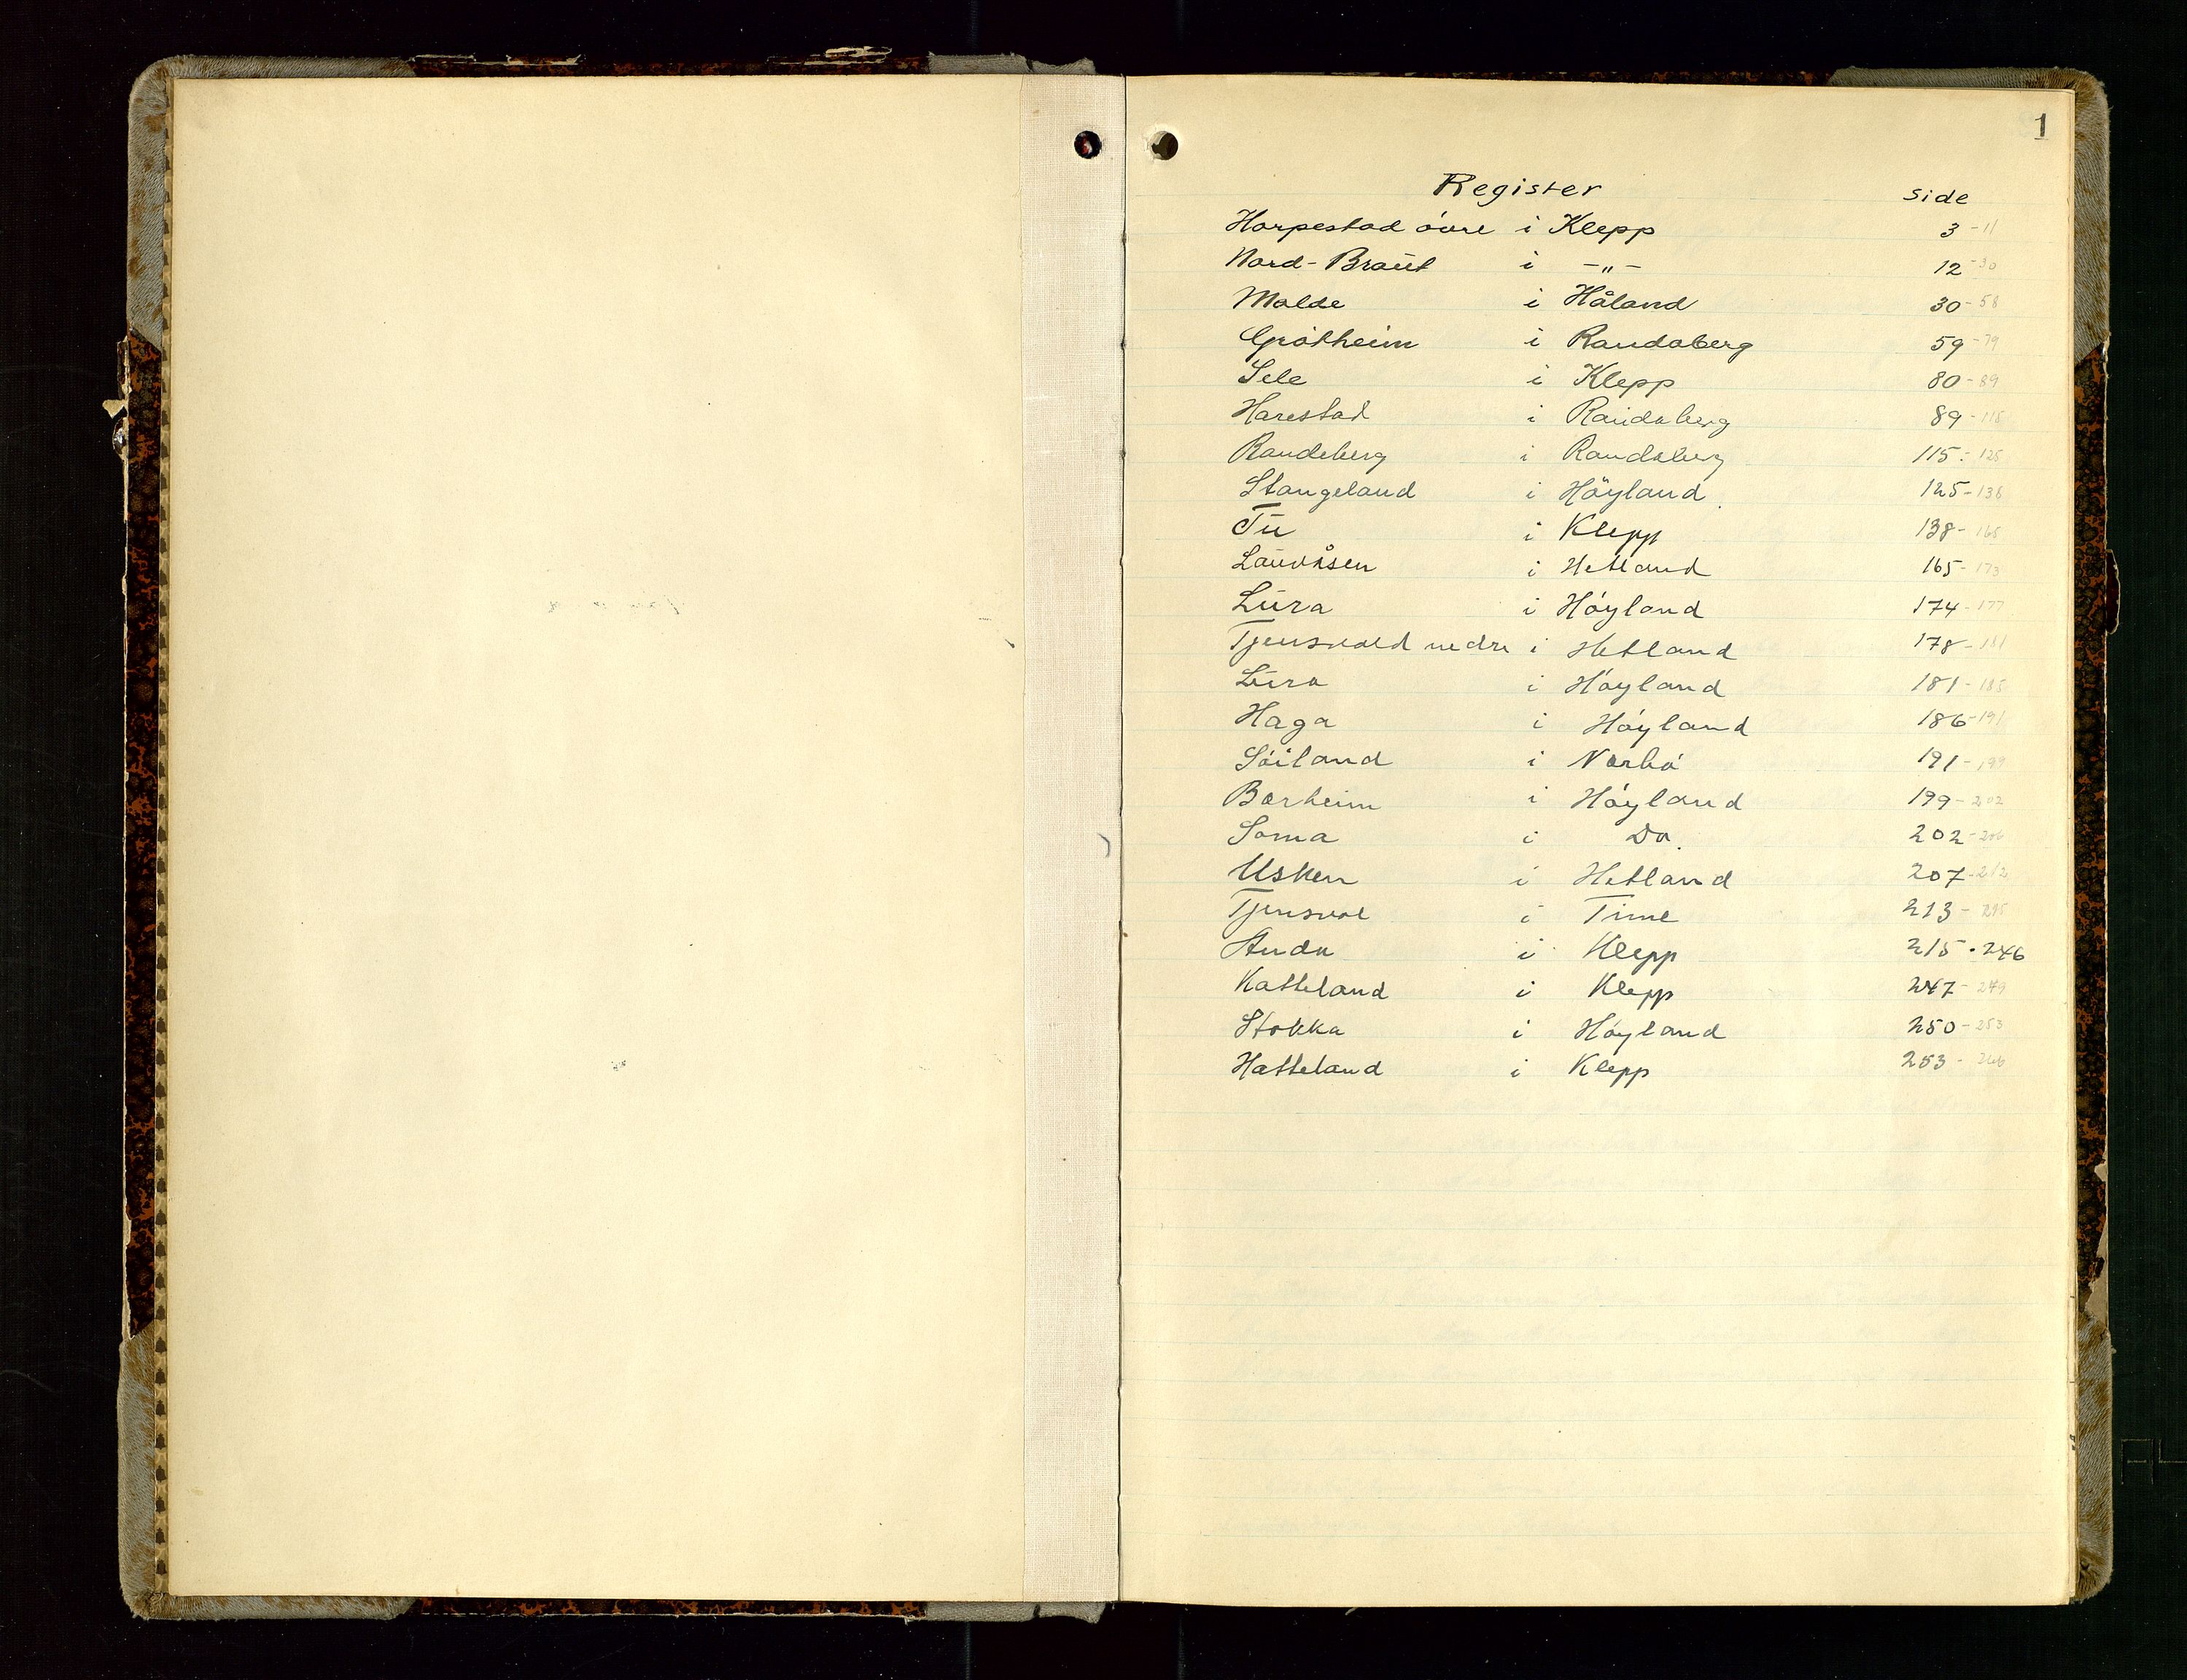 1
Register side
Harpestad övre i Klepp 3 - 11
Nord-Braut i -"- 12 - 30
Malde i Håland 30 - 58
Grótheim i Randaberg 59 - 79
Sele i Klepp 80 - 89
Harestad i Randaberg 89 - 115
Randeberg i Randaberg 115 - 125
Stangeland i Höyland 125 - 138
Tu i Klepp 138 - 165
Lauvåsen i Hetland 165 - 173
Lura i Höyland 174 - 177
Tjensvold nedre i Hetland 178 - 181
Lura i Höyland 181 - 185
Haga i Höyland 186 - 191
Söiland i Narbö 191 - 199
Bærheim i Höyland 199 - 202
Soma i Do. 202 - 206
Usken i Hetland 207 - 212
Tjensvol i Time 213 - 215
Anda i Klepp 215 - 246
Katteland i Klepp 247 - 249
Stokka i Höyland 250 - 253
Hatteland i Klepp 253 - 266